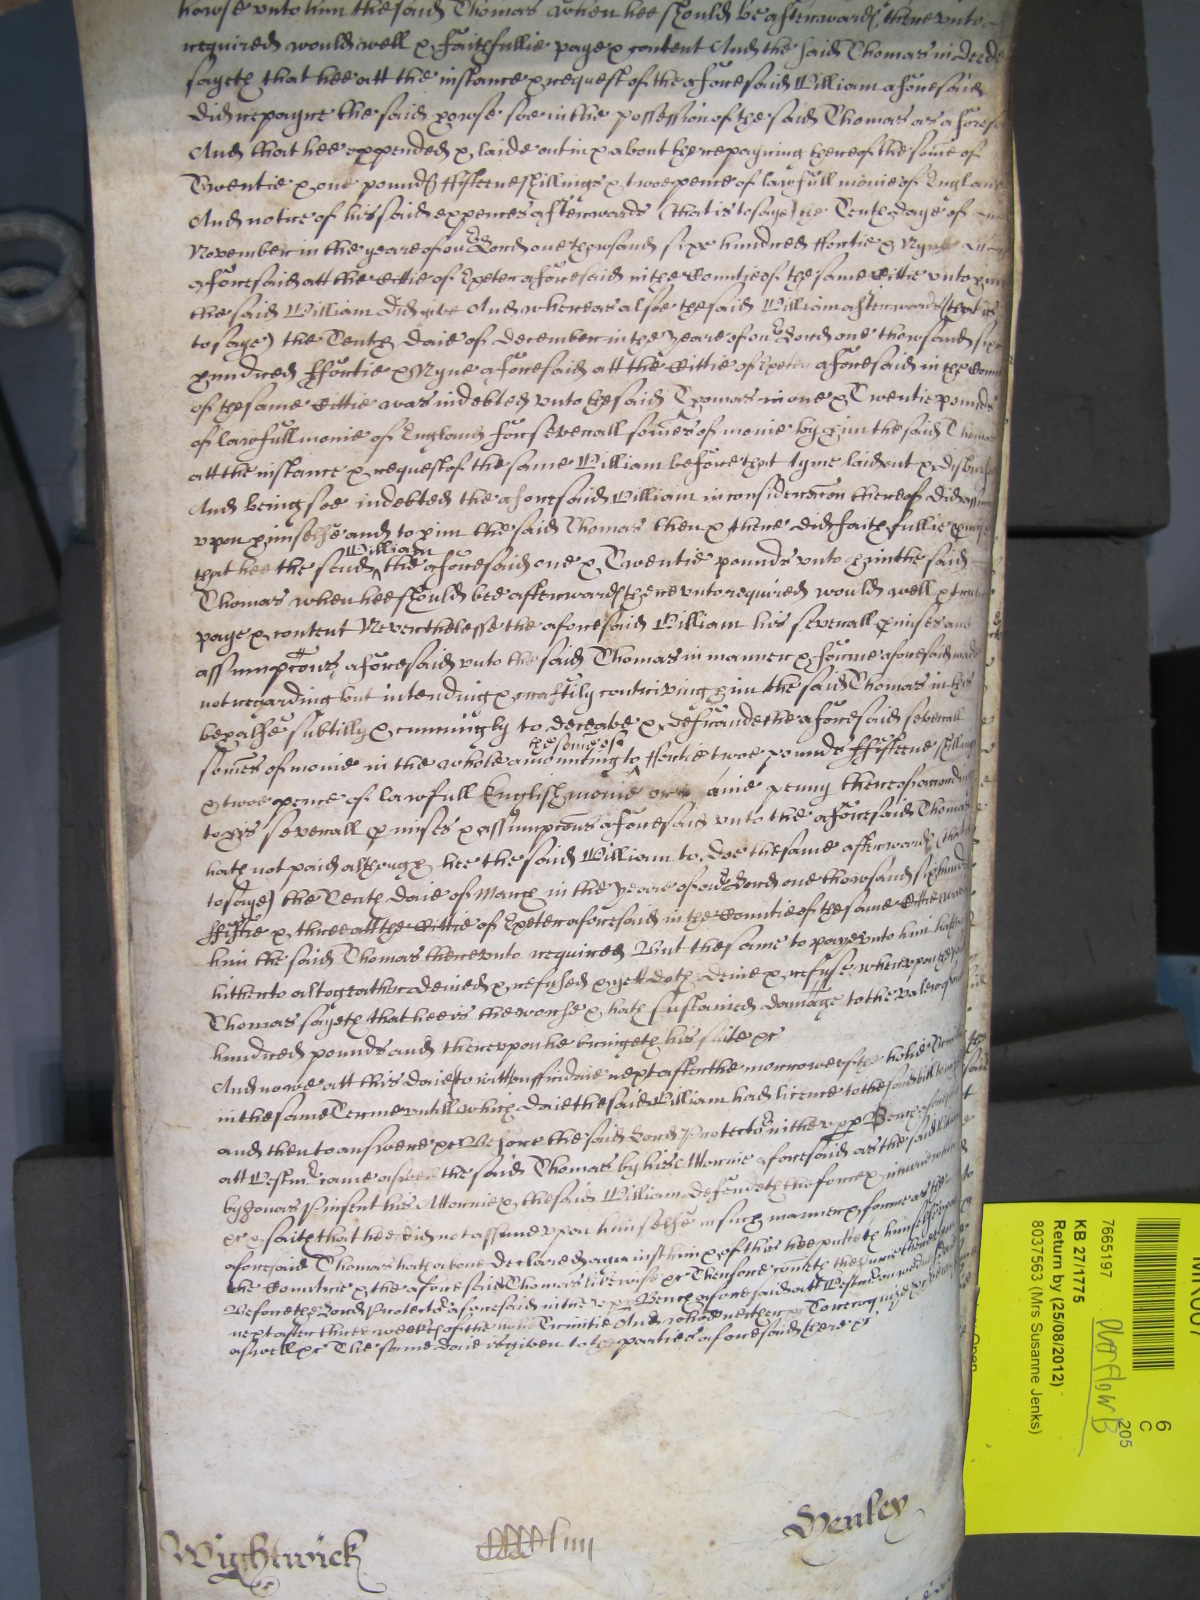 howse unto him the said Thomas when hee should be afterwards thereunto
required would well & faithfullie paye & content And the said Thomas in deede
sayeth that hee att the instance & request of the aforesaid William aforesaid
did repayre the said howse soe in the possession of the said Thomas as afores
And that hee expended & laide out in & about the repayring thereof the some of
Twentie & one pounds ffifteene shillings & twoe pence of lawfull monie of England
And notice of his said expences afterwards (that is to saye) the Tenth daye of
November in the yeare of our Lord one thowsand six hundred ffortie & Nyne
aforesaid att the Cittie of Exeter aforesaid in the Countie of the same Cittie unto him
the said William did give And whereas alsoe the said William afterwards (that is
to saye) the Tenth daie of December in the yeare of our Lord one thowsand six
hundred ffortie & Nyne aforesaid att the Cittie of Exeter aforesaid in the Count
of the same Cittie was indebted unto the said Thomas in one & Twentie pounds
of lawfull monie of England for severall somes of monie by him the said Thomas
att the instance & request of the same William before that tyme laid out & disburs
And being soe indebted the aforesaid William in consideracon thereof did assume
upon himselfe and to him the said Thomas then & there did faithfullie promise
that hee the said William the aforesaid one & Twentie pounds unto him the said
Thomas when hee should bee afterwards thereunto required would well & truly
paye & content Neverthelesse the aforesaid William his severall promises and
assumpcons aforesaid unto the said Thomas in manner & forme aforesaid made
not regarding but intending & craftily contriving him the said Thomas in this
behalfe subtilly & cunningly to deceave & defraude the aforesaid severall
somes of monie in the whole amounting to the some of ffortie twoe pounds ffifteene shillings
& twoe pence of lawfull English monie or anie penny thereof according
to his severall promises & assumpcons aforesaid unto the aforesaid Thomas
hath not paid although hee the said William to doe the same afterwards (that is
to saye) the Tenth daie of March in the yeare of our Lord one thowsand six hund
ffiftie & three att the Cittie of Exeter aforesaid in the Countie of the same Cittie was
him the said Thomas thereunto required But the same to paye unto him hath
hitherto altogeather denied & refused & yett doth denie & refuse whereupon the
Thomas sayeth that hee is the worse & hath sustained damage to the value of
hundred pounds and thereupon he bringeth his suite &c
And nowe att this daie (to witt) uppon ffridaie next after the morrowe of the holie Trin
in the same Terme untill which daie the said William had licence to the said bill to
and then to answere &c Before the said Lord Protector in the upper Bench
att Westmr came aswell the said Thomas by his Attornie aforesaid as the said William
by Jonas Pinsent his Attornie & the said William defendeth the force & injurie when
&c & saith that hee did not assume upon himselfe in such manner & forme as the
aforesaid Thomas hath above declared against him & of this hee putteth himselfe upon
the Countrie & the aforesaid Thomas likewise &c Therefore
Before the Lord Protector aforesaid in the upper Bench aforesaid att Westmr on
next after three weekes of the holie Trinitie And who neither &c To recognize &c
aswell &c The same daie is given to the parties aforesaid there &c
Wightwick
Henley
MRC07
7665197
KB 27/1775
Return by (25/08/2012)
8037563 (Mrs Susanne Jenks)
6
C
205
Overflow B